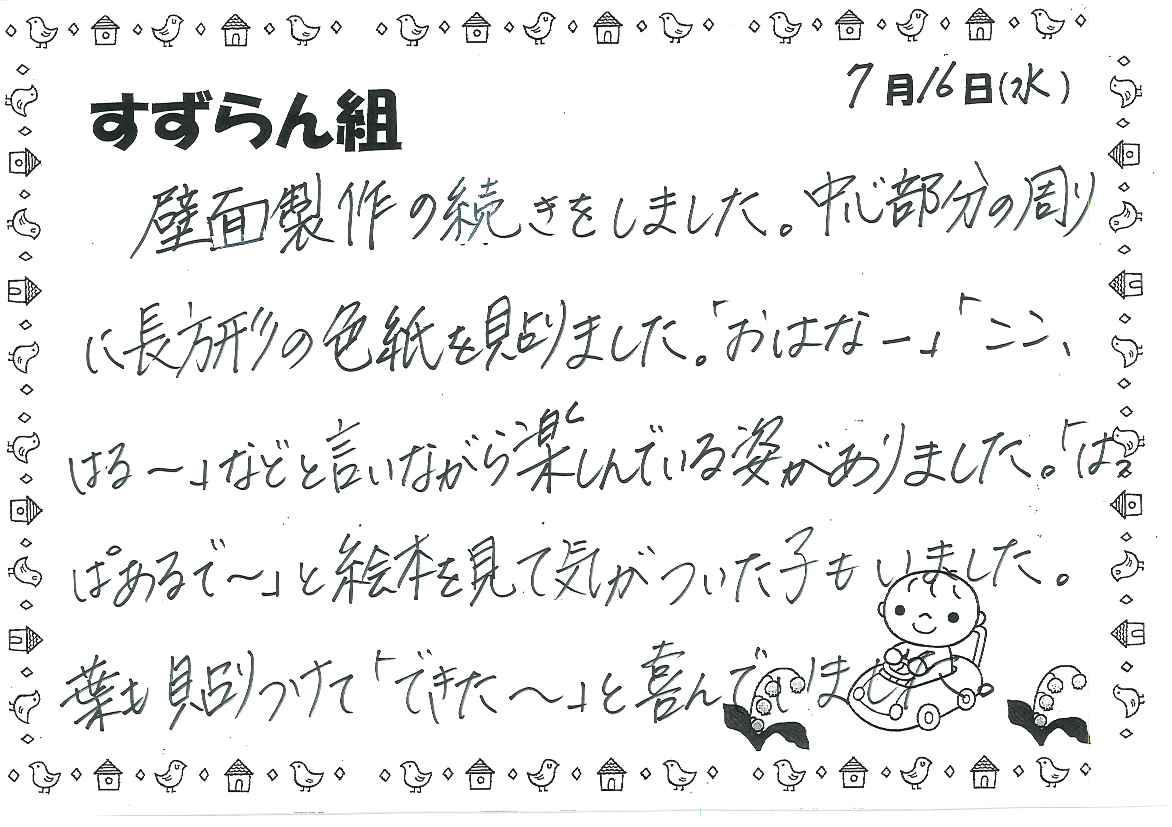 7月16日(水)
すずらん組
壁面製作の続きをしました。中心部分の周り
に長方形の色紙を貼りました。「おはなー」「ここ、
はる～」などと言いながら楽しんでいる姿がありました。「はっ
ぱあるで～」と絵本を見て気がついた子もいました。
葉も貼りつけて「できた～」と喜んでいました